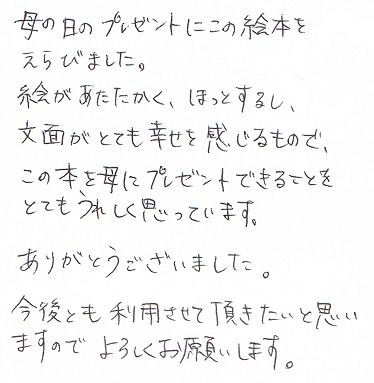 母の日のプレゼントにこの絵本を
えらびました。
絵があたたかく、ほっとするし、
文面がとても幸せを感じるもので、
この本を母にプレゼントできることを
とてもうれしく思っています。
ありがとうございました。
今後とも利用させて頂きたいと思い
ますのでよろしくお願いします。